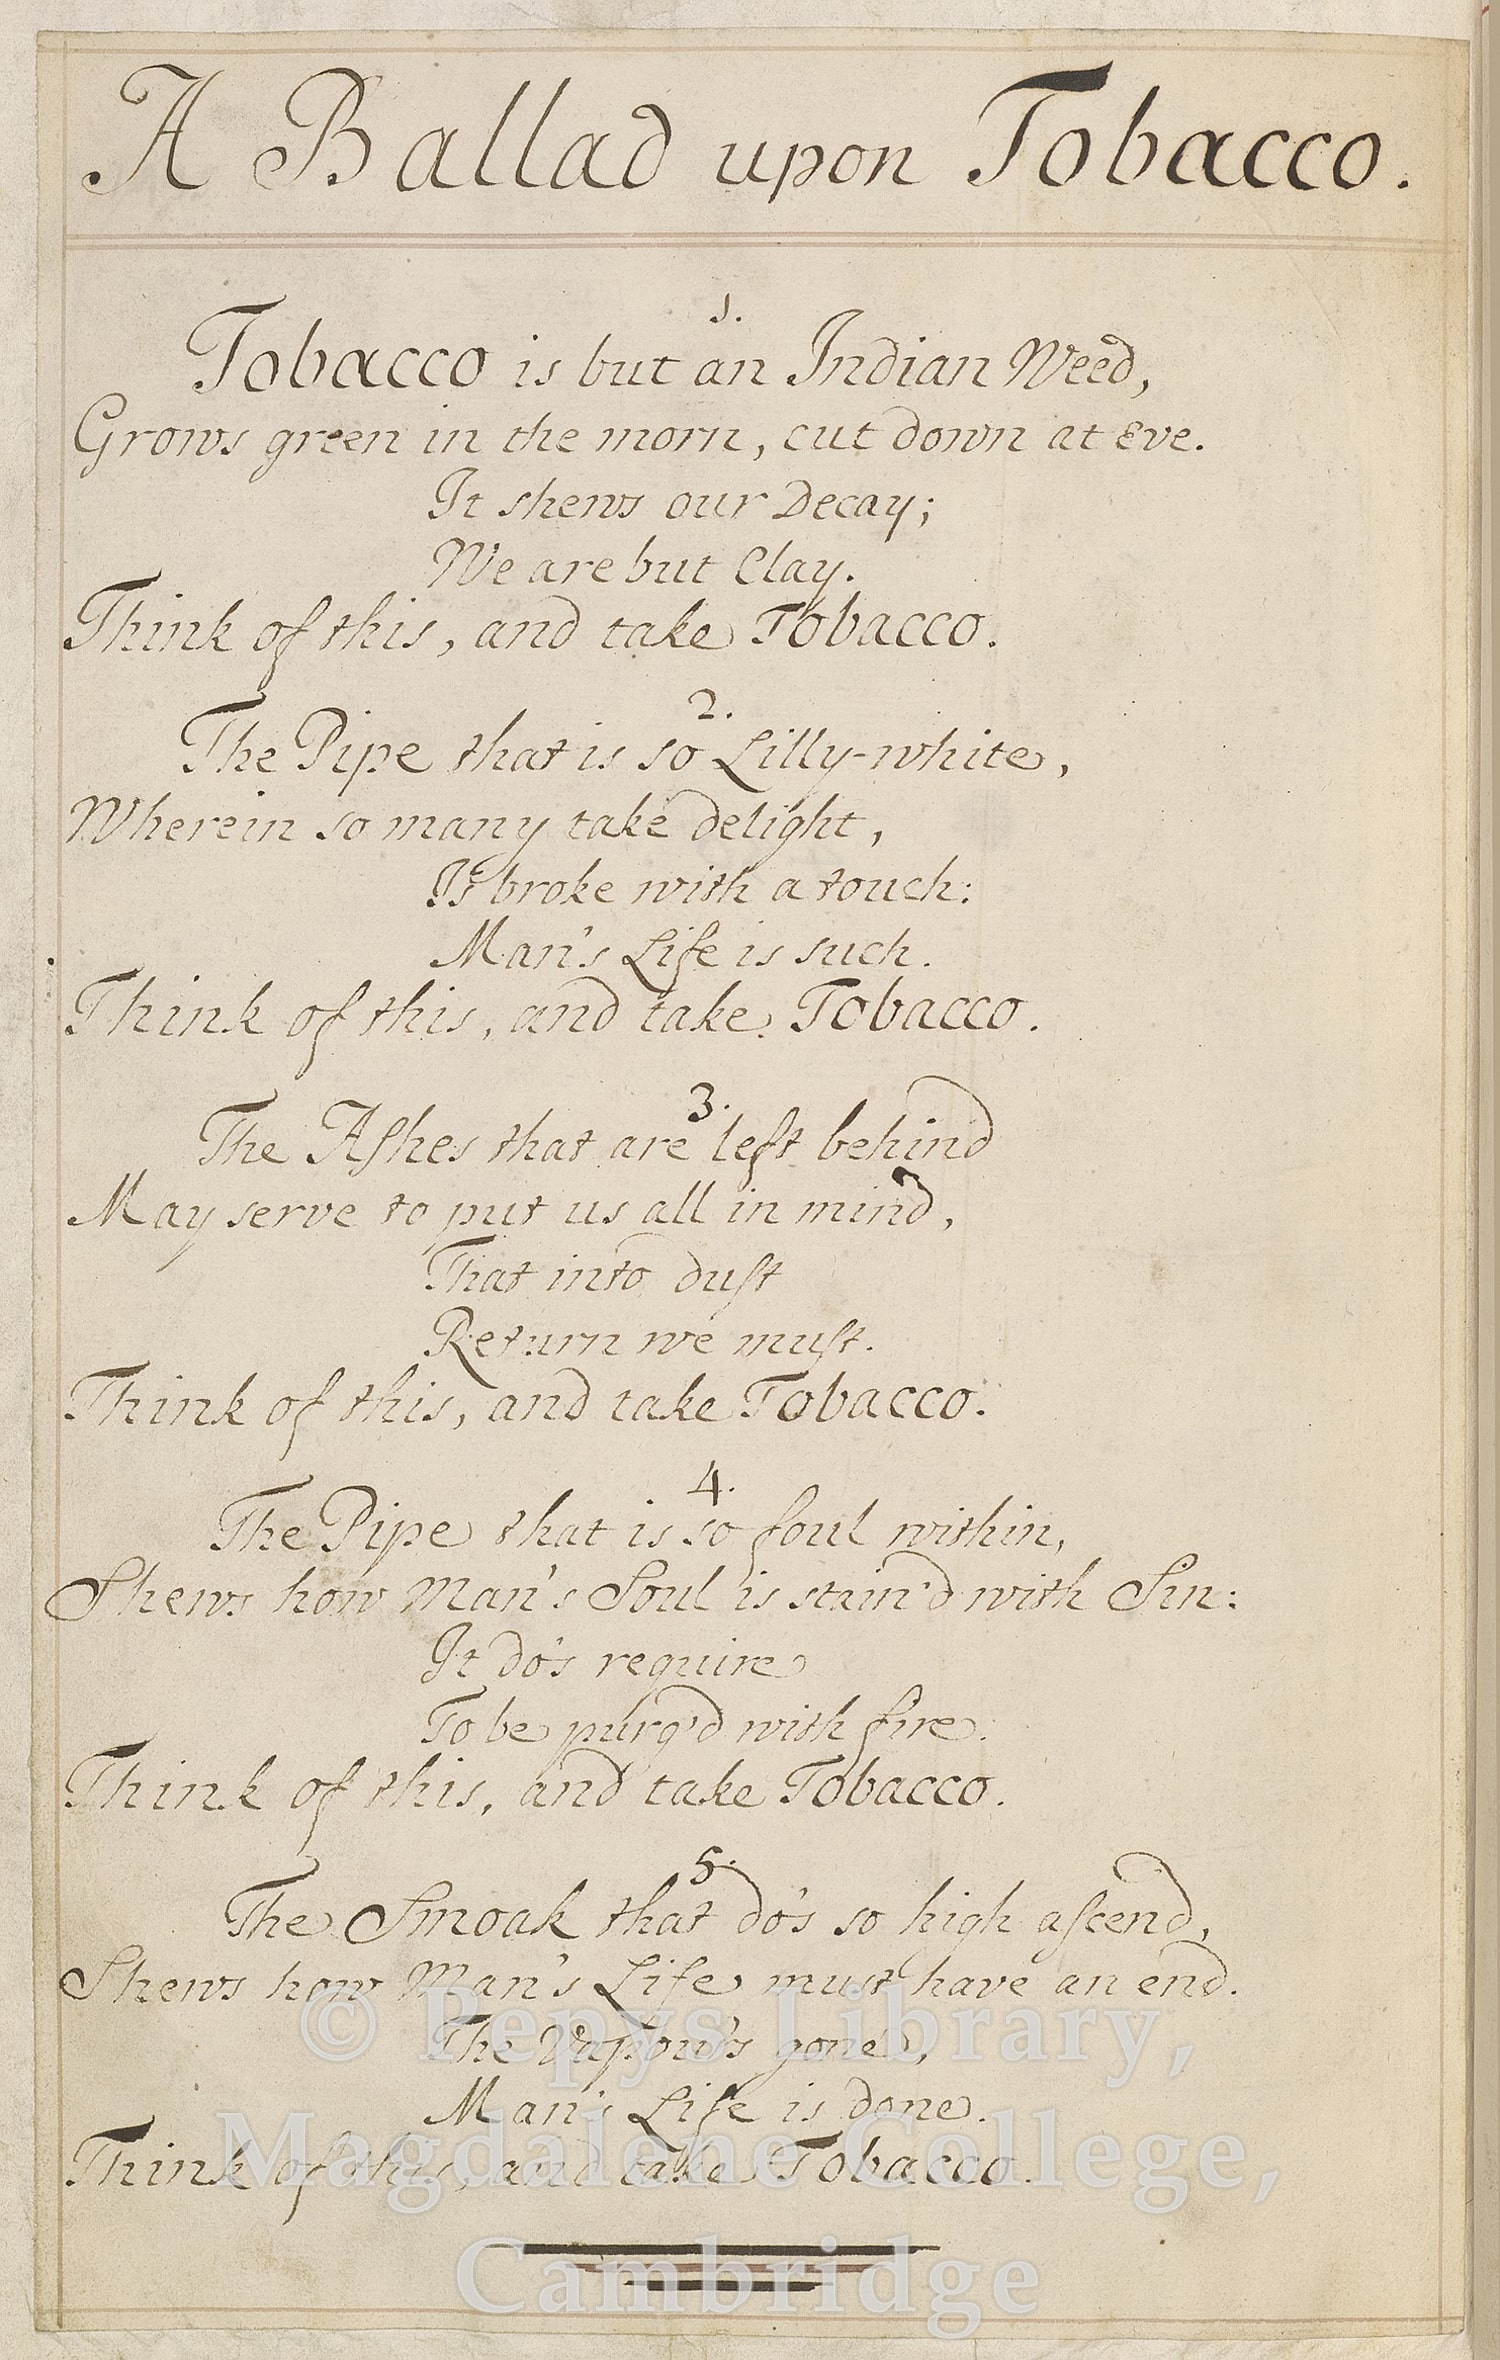 A Ballad upon Tobacco.
1.
Tobacco is but an Indian Weed,
Grows green in the morn, cut down at Eve.
It shews our Decay;
We are but Clay.
Think of this, and take Tobacco.
2.
The Pipe that is so Lilly-white,
Wherein so many take delight,
Is broke with a touch:
Man's Life is such.
Think of this, and take Tobacco.
3.
The Aſhes that are left behind
May serve to put us all in mind,
That into duſt
Return we muſt.
Think of this, and take Tobacco.
4.
The Pipe that is so foul within,
Shews how Man's Soul is stain'd with Sin:
It do's require
To be purg'd with fire.
Think of this, and take Tobacco.
5.
The Smoak that do's so high aſcend,
Shews how Man's Life must have an end.
The Vapour's gone,
Man's Life is done.
Think of this, and take Tobacco.
© Pepys Library,
Magdalene College,
Cambridge